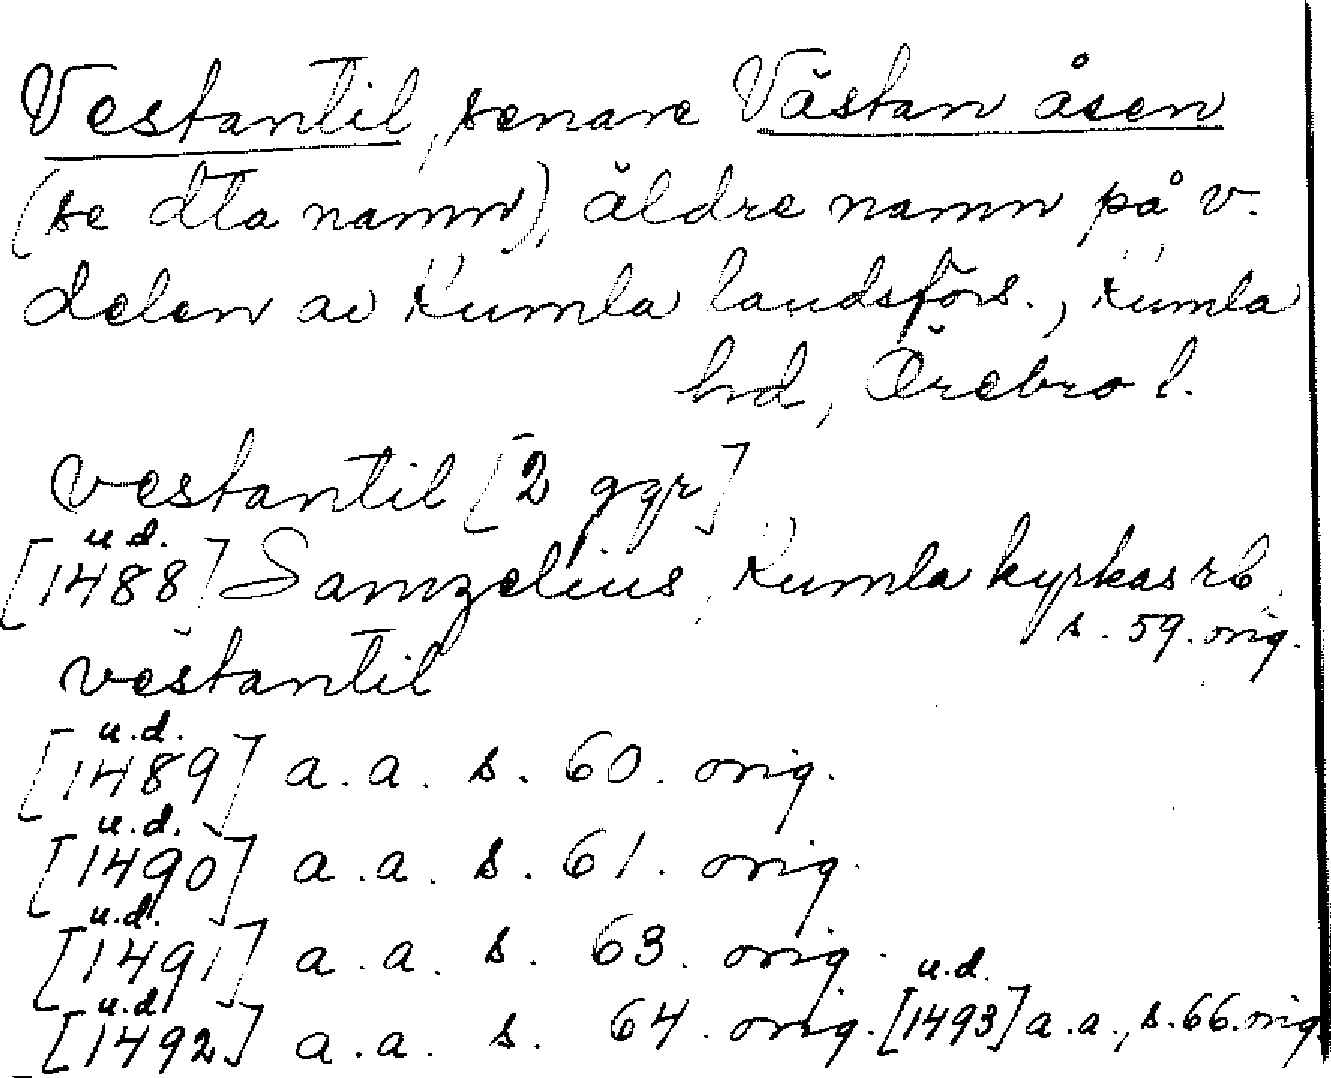 Vestantil, senare Västan åsen
(se dta namn), äldre namn på v.
delen av Kumla landsförs., Kumla
hd, Örebro l.
vestantil [2 ggr]
u.d.
[1488] Samzelius, Kumla kyrkas rb,
s. 59. orig.
vëstantil
u.d.
[1489] a.a. s. 60. orig.
u.d.
[1490] a.a. s. 61. orig.
u.d.
[1491] a.a. s. 63. orig.
u.d. u.d.
[1492] a.a. s. 64. orig. [1493] a.a., s. 66. orig.